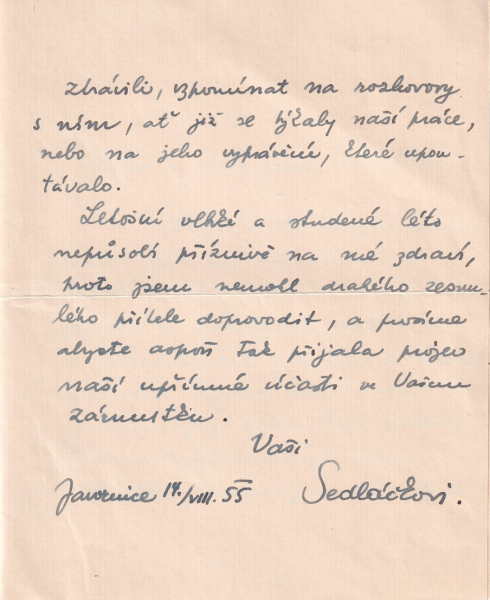 ztratili, vzpomínat na rozhovory
s ním, ať již se týkaly naší práce,
nebo na jeho vyprávění, které upou-
távalo.
Letošní vlhké a studené léto
nepůsobí příznivě na mé zdraví,
proto jsem nemohl drahého zesnu-
lého přítele doprovodit, a prosíme
abyste aspoň tak přijala projev
naší upřímné účasti ve Vašem
zármutku.
Vaši
Javornice 14./VIII. 55 Sedláčkovi.